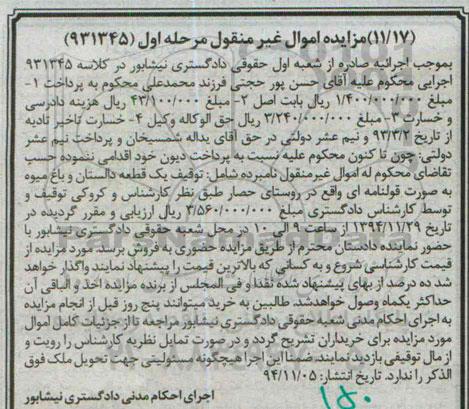 (۱۱/۱۷)مزایده اموال غیر منقول مرحله اول (۹۳۱۳۴۵)
بموجب اجرائیه صادره از شعبه اول حقوقی دادگستری نیشابور در کلاسه ۹۳۱۳۴۵
اجرایی محکوم علیه آقای حسن پور حجتی فرزند محمدعلی محکوم به پرداخت ۱-
مبلغ ۱/۴۰۰/۰۰۰/۰۰۰ ریال بابت اصل ۲- مبلغ ۴۳/۱۰۰/۰۰۰ ریال هزینه دادرسی
و خسارت ۳-مبلغ ۳/۲۴۰/۰۰۰/۰۰۰ ریال حق الوکاله وکیل ۴- خسارت تاخیر تادیه
از تاریخ ۹۳/۳/۲ و نیم عشر دولتی در حق آقای یداله شمسیخان و پرداخت نیم عشر
دولتی: چون تا کنون محکوم علیه نسبت به پرداخت دیون خود اقدامی ننموده حسب
تقاضای محکوم له اموال غیرمنقول نامبرده شامل: توقیف یک قطعه دالستان و باغ میوه
به صورت قولنامه ای واقع در روستای حصار طبق نظر کارشناس و کروکی توقیف و
توسط کارشناس دادگستری مبلغ ۳/۵۶۰/۰۰۰/۰۰۰ ریال ارزیابی و مقرر گردیده در
تاریخ ۱۳۹۴/۱۱/۲۹ از ساعت ۹ الی ۱۰ در محل شعبه حقوقی دادگستری نیشابور با
حضور نماینده دادستان محترم از طریق مزایده حضوری به فروش برسد. مورد مزایده از
قیمت کارشناسی شروع و به کسانی که بالاترین قیمت را پیشنهاد نمایند واگذار خواهد
شد ده درصد از بهای پیشنهاد شده نقدا و فی المجلس از برنده مزایده اخذ و الباقی آن
حداکثر یکماه وصول خواهدشد. طالبین به خرید میتوانند پنج روز قبل از انجام مزایده
به اجرای احکام مدنی شعبه حقوقی دادگستری نیشابور مراجعه تا از جزئیات کامل اموال
مورد مزایده برای خریداران تشریح گردد و در صورت تمایل نظریه کارشناس را رویت و
از مال توقیفی بازدید نمایند. ضمنا این اجرا هیچگونه مسئولیتی جهت تحویل ملک فوق
الذکر را ندارد. تاریخ انتشار: ۹۴/۱۱/۰۵
اجرای احکام مدنی دادگستری نیشابور